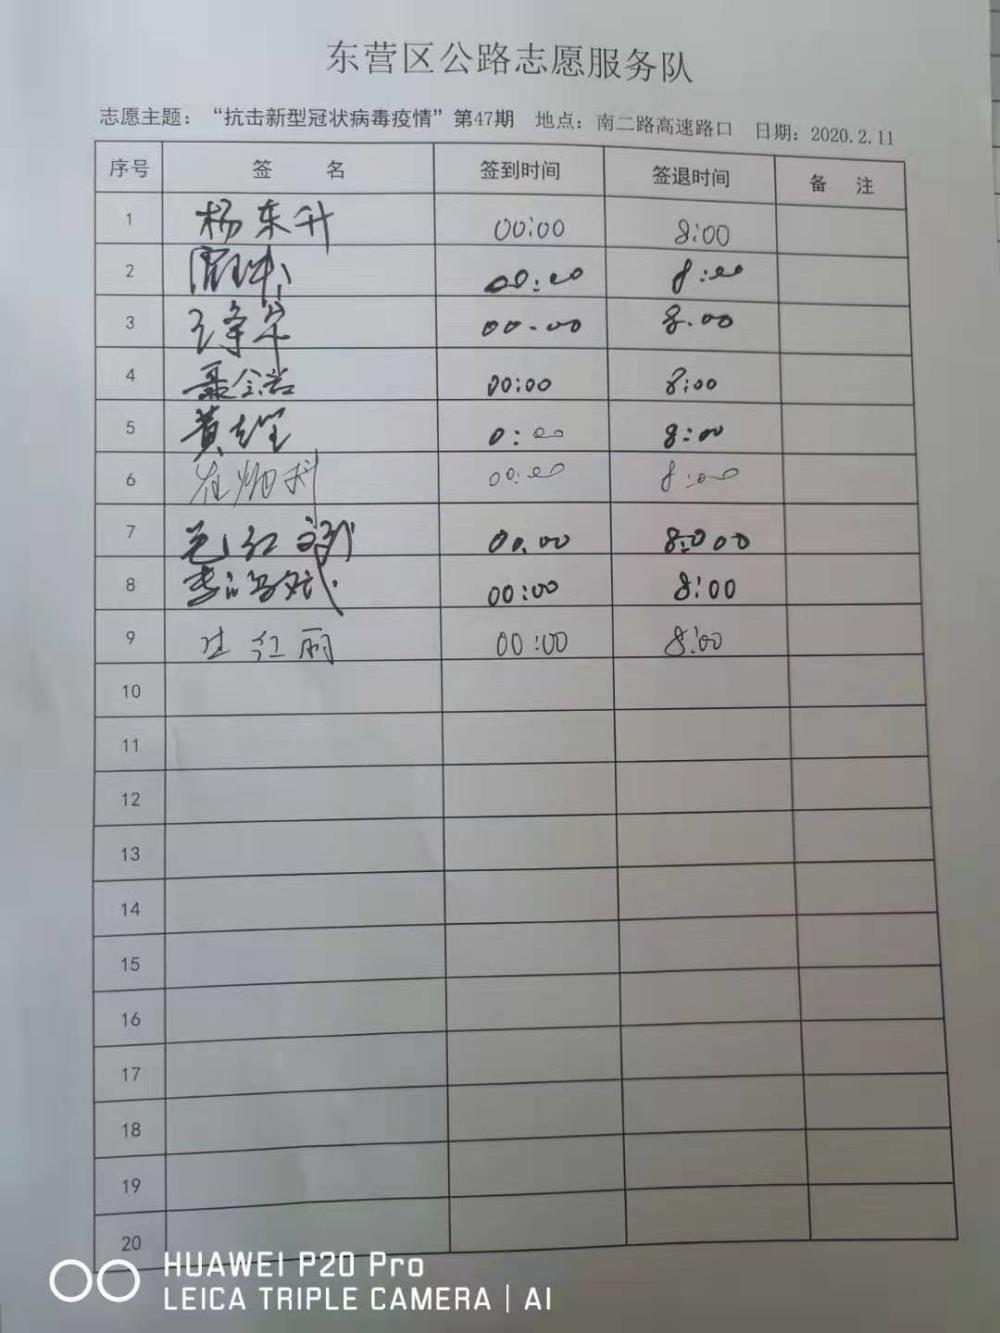 东营区公路志愿服务队
志愿主题：“抗击新型冠状病毒疫情”第47期 地点：南二路高速路口 日期：2020.2.11
序号 签 名 签到时间 签退时间 备 注
1 杨东升 00:00 8:00
2 00:00 8:00
3 00.00 8.00
4 00:00 8:00
5 黄 0:00 8:00
6 00:00 8:00
7 毛红 00.00 8:000
8 00:00 8:00
9 红丽 00:00 8:00
10
11
12
13
14
15
16
17
18
19
20
HUAWEI P20 Pro
LEICA TRIPLE CAMERA | AI